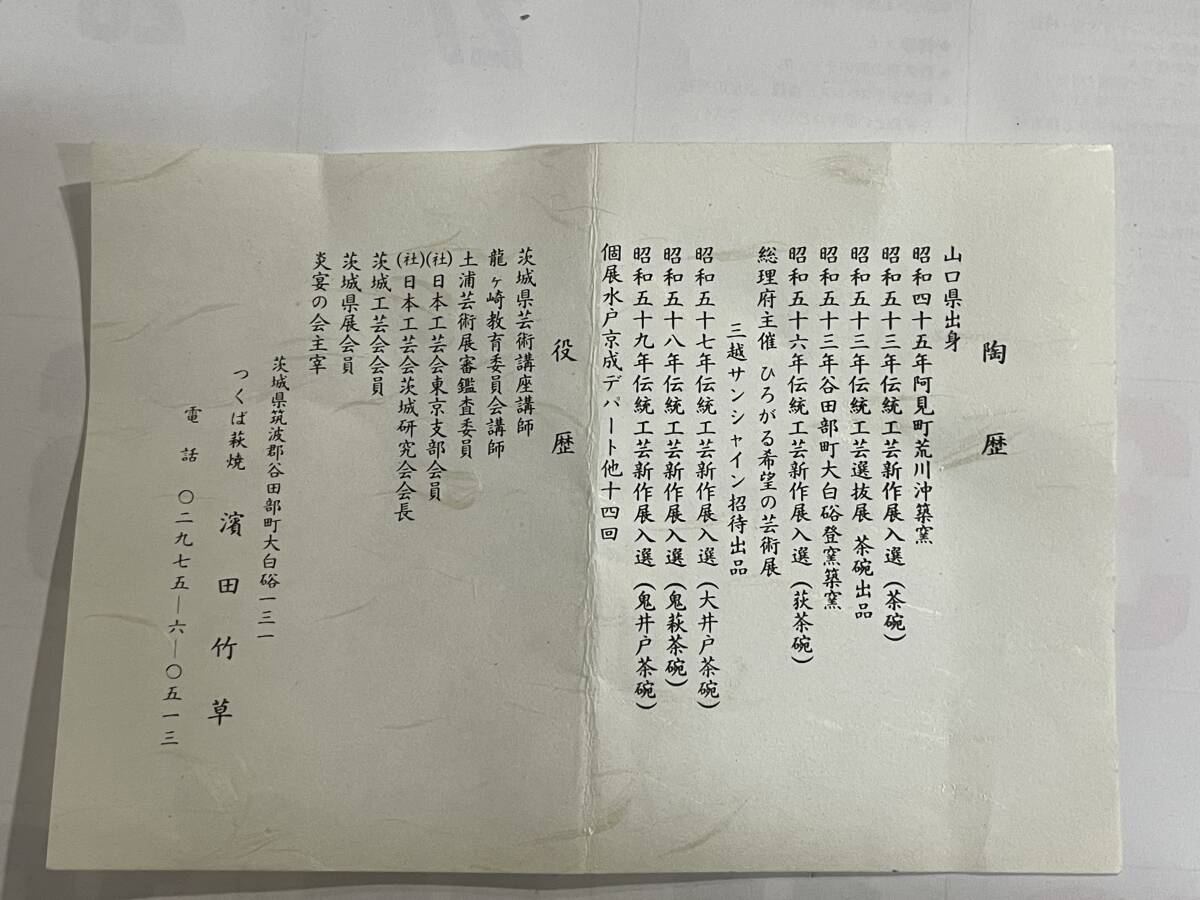 陶歴
山口県出身
昭和四十五年阿見町荒川沖築窯
昭和五十三年伝統工芸新作展入選(茶碗)
昭和五十三年伝統工芸選抜展 茶碗出品
昭和五十三年谷田部町大白硲登窯築窯
昭和五十六年伝統工芸新作展入選(萩茶碗)
総理府主催 ひろがる希望の芸術展
三越サンシャイン招待出品
昭和五十七年伝統工芸新作展入選(大井戸茶碗)
昭和五十八年伝統工芸新作展入選(鬼萩茶碗)
昭和五十九年伝統工芸新作展入選(鬼井戸茶碗)
個展水戸京成デパート他十四回
役歴
茨城県芸術講座講師
龍ヶ崎教育委員会講師
土浦芸術展審鑑査委員
(社)日本工芸会東京支部会員
(社)日本工芸会茨城研究会会長
茨城工芸会会員
茨城県展会員
炎宴の会主宰
茨城県筑波郡谷田部町大白硲一三一
つくば萩焼 濱田竹草
電話 〇二九七五―六―〇五一三